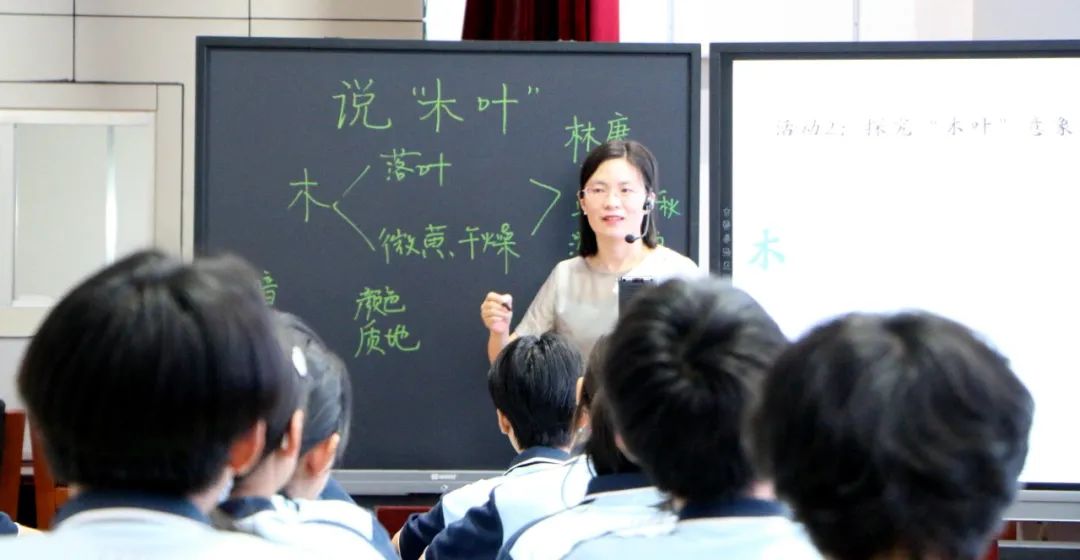 说"木叶"
林庚
木
落叶
微黄、干燥
秋
颜色
质地
活动2：探究"木叶"意象
木